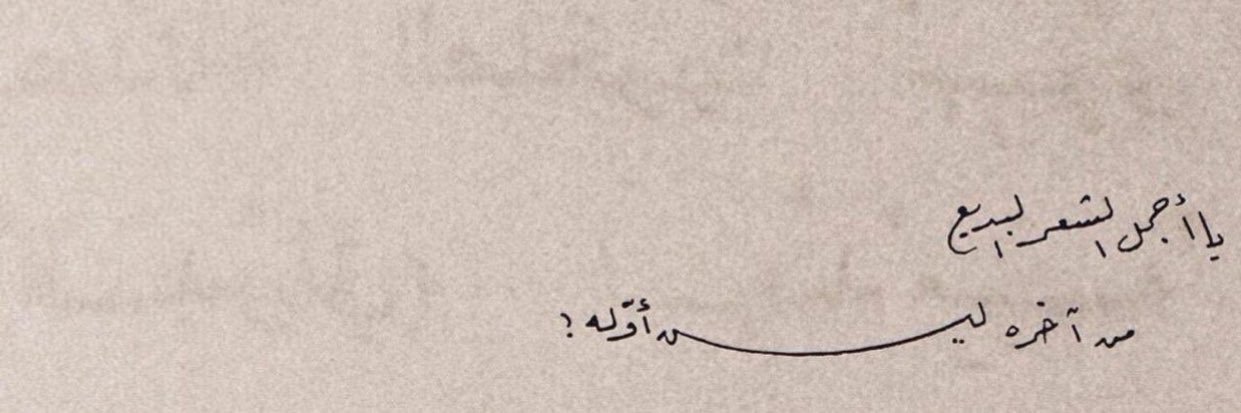 يا أجمل الشعر البديع
من آخره ليــــــن أوّله ؟